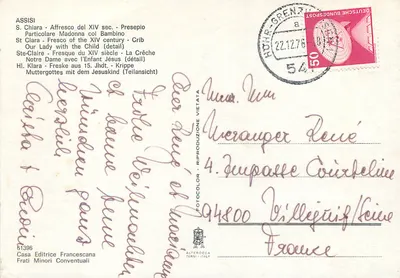 ASSISI
S. Chiara - Affresco del XIV sec. - Presepio
Particolare Madonna col Bambino
St Clara - Fresco of the XIV century - Crib
Our Lady with the Child (detail)
Ste-Claire - Fresque du XIV siècle - La Crèche
Notre Dame avec l'Enfant Jésus (détail)
Hl. Klara - Freske aus 15. Jhdt. - Krippe
Muttergottes mit dem Jesuskind (Teilansicht)
René et
Frohe Weihnachten
et bonne
wünschen ganz
herzlich
51396
Casa Editrice Francescana
Frati Minori Conventuali
RIPRODUZIONE VIETATA
HÖHR-GRENZHAUSEN
a
22.12.76
541
DEUTSCHE BUNDESPOST
50
René
4. Impasse Courteline
94800 Villejuif/Seine
France